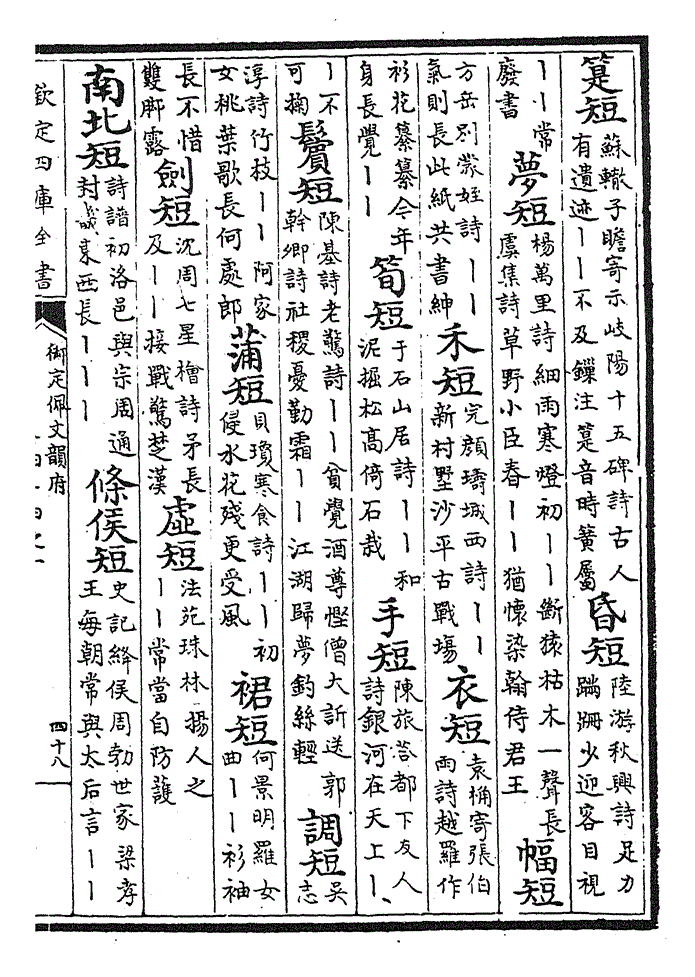 䈕短蘇轍子瞻寄示岐陽十五碑詩古人有遺迹丨丨不及鏁注䈕音時簧屬昏短陸游秋興詩足力蹣跚少迎客目視
丨丨常廢書夢短楊萬里詩細雨寒燈初丨丨斷猿枯木一聲長虞集詩草野小臣春丨丨猶懷染翰侍君王幅短
方岳別蒙姪詩丨丨氣則長此紙共書紳禾短完顔璹城西詩丨丨新村墅沙平古戰塲衣短袁桷寄張伯雨詩越羅作
衫花纂纂今年身長覺丨丨筍短于石山居詩丨丨和泥掘松高倚石栽手短陳旅荅都下友人詩銀河在天上丨
丨不可掬鬢短陳基詩老驚詩丨丨貧覺酒尊慳僧大訢送郭幹卿詩社稷憂勤霜丨丨江湖歸夢釣絲輕調短吳志
淳詩竹枝丨丨阿家女桃葉歌長何處郎蒲短貝瓊寒食詩丨丨初侵水花殘更受風裙短何景明羅女曲丨丨衫袖
長不惜雙脚露劍短沈周七星檜詩矛長及丨丨接戰驚楚漢虛短法苑珠林揚人之丨丨常當自防護
南北短詩譜初洛邑與宗周通封畿東西長丨丨丨條侯短史記絳侯周勃世家梁孝王每朝常與太后言丨丨
欽定四庫全書
御定佩文韻府
四十八